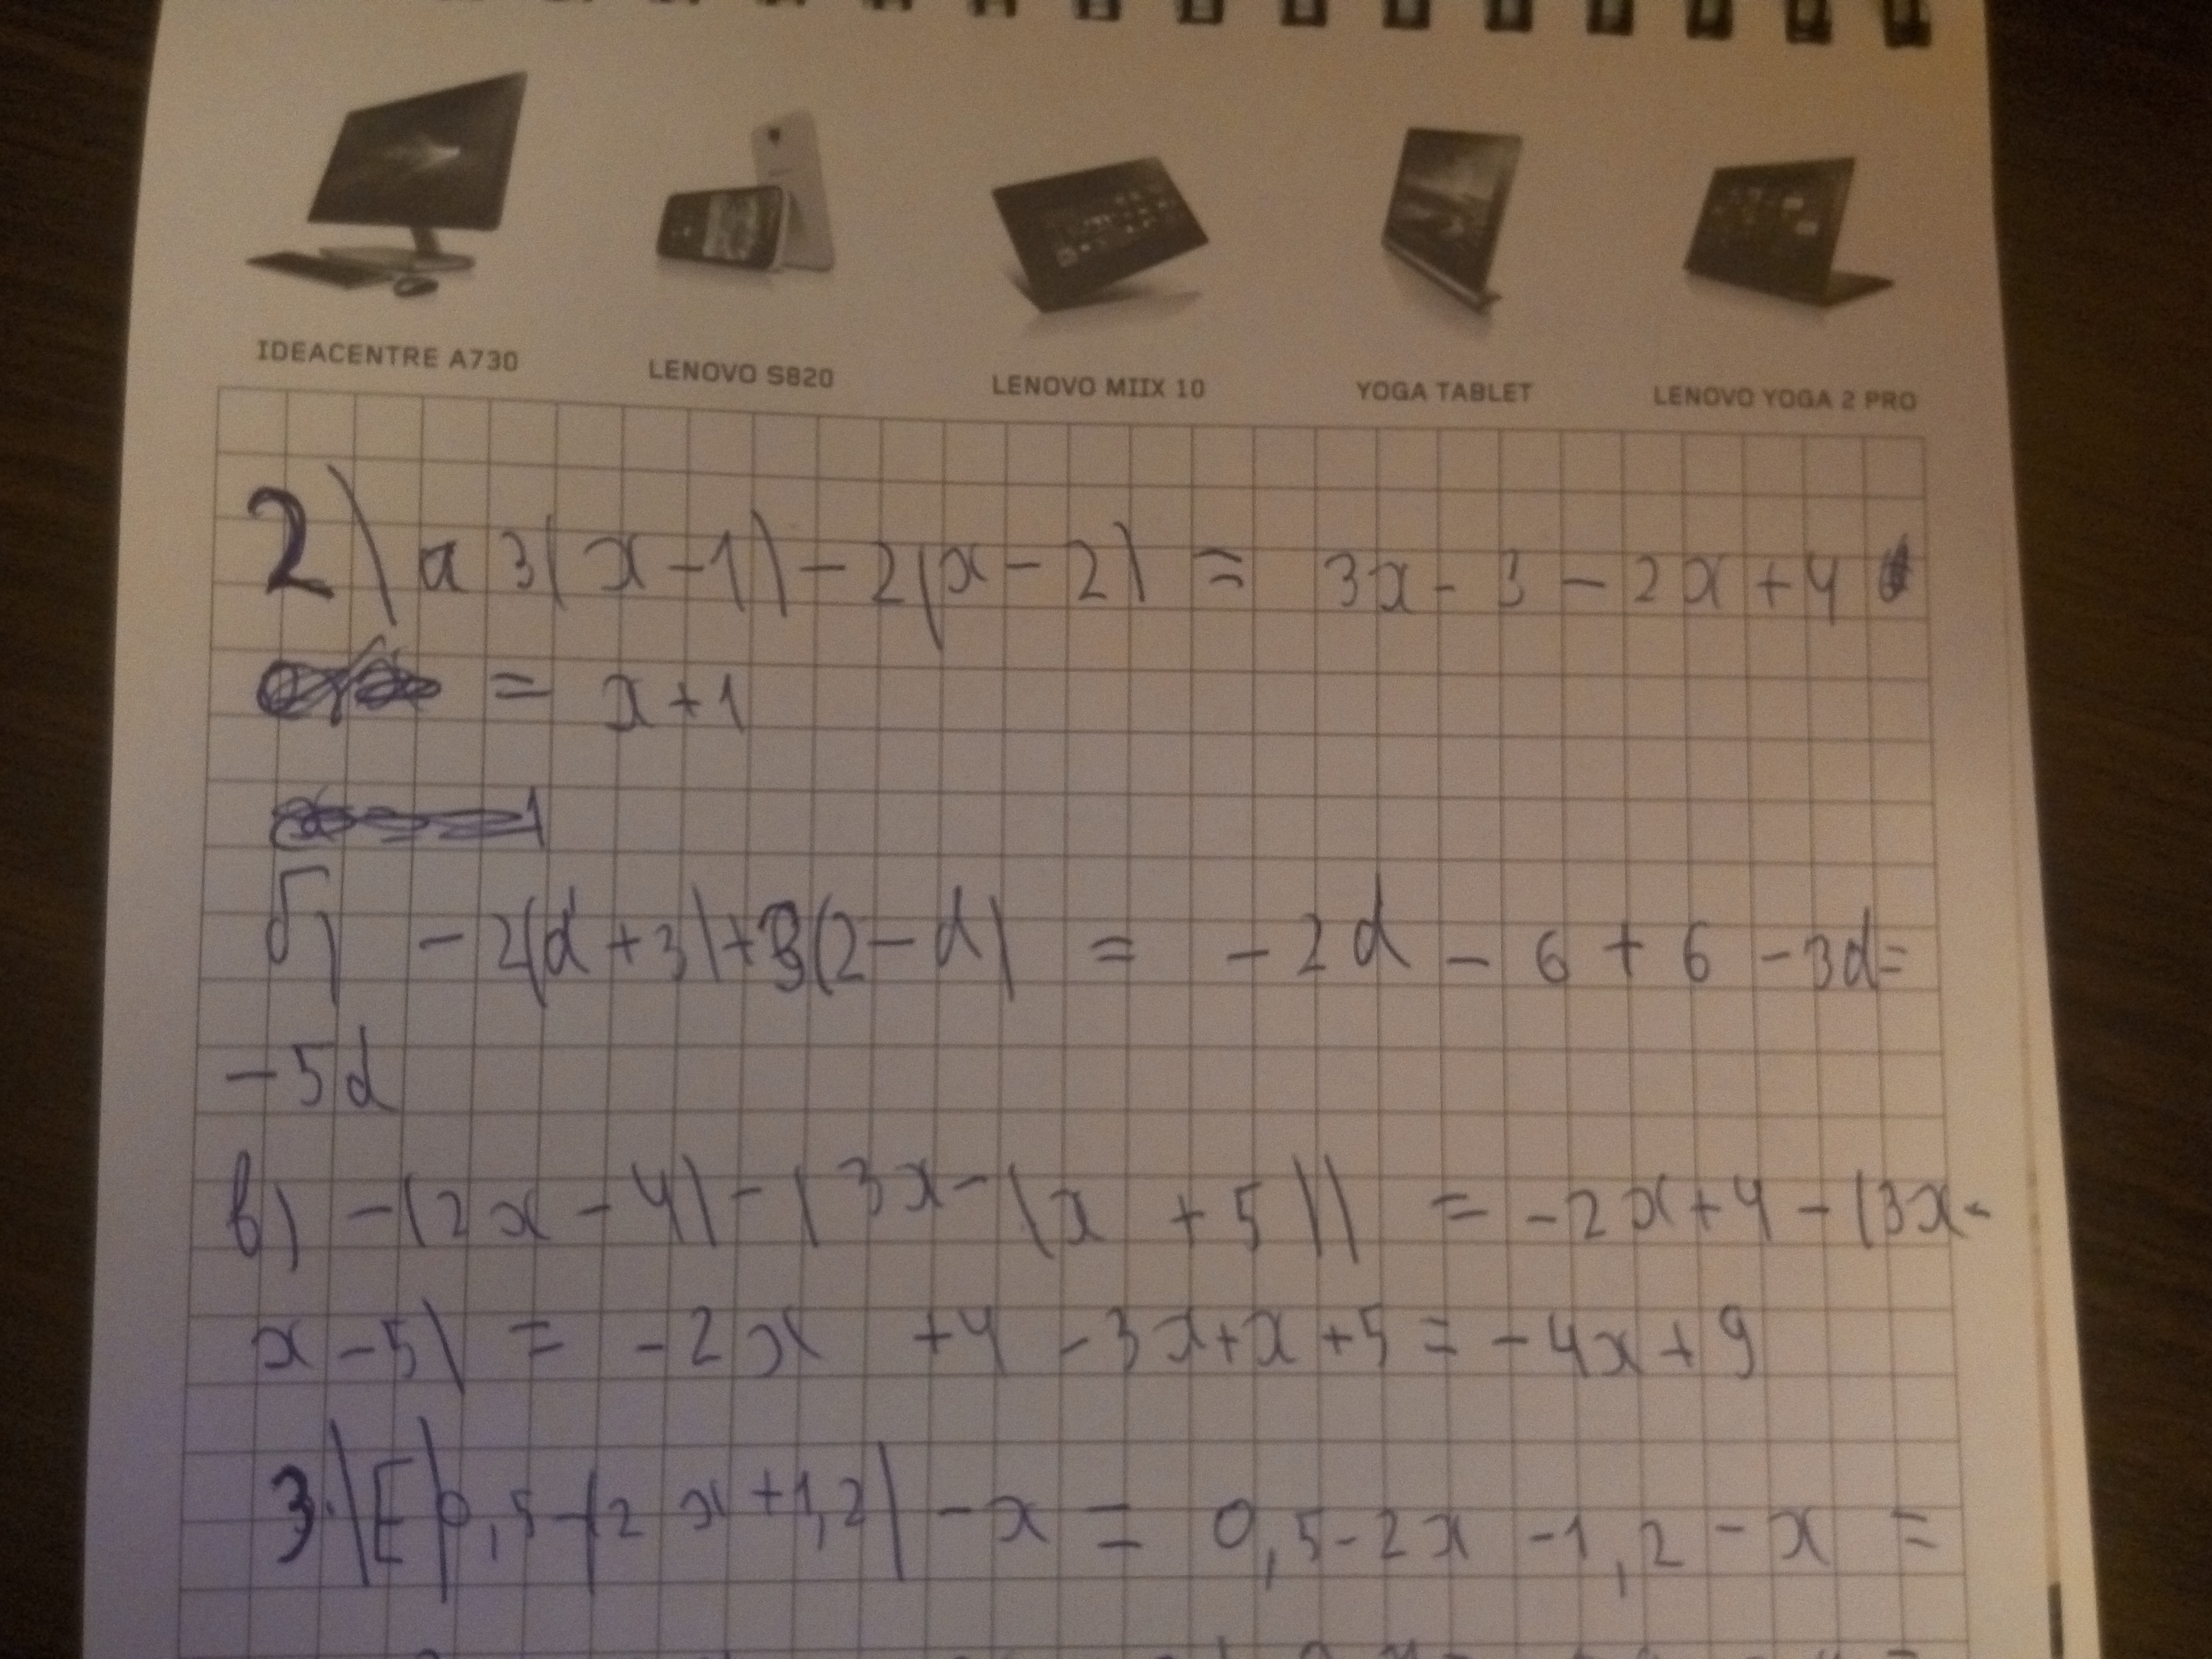 IDEACENTRE A730 LENOVO S820 LENOVO MIIX 10 YOGA TABLET LENOVO YOGA 2 PRO
2) а 3(x-1)-2(x-2) = 3x-3-2x+4
= x+1
б) -2(d+3)+3(2-d) = -2d-6+6-3d=
-5d
в) -(2x-4)-(3x-(x+5)) = -2x+4-(3x-
x-5) = -2x+4-3x+x+5=-4x+9
3.) E) 0,5-(2x+1,2)-x = 0,5-2x-1,2-x =